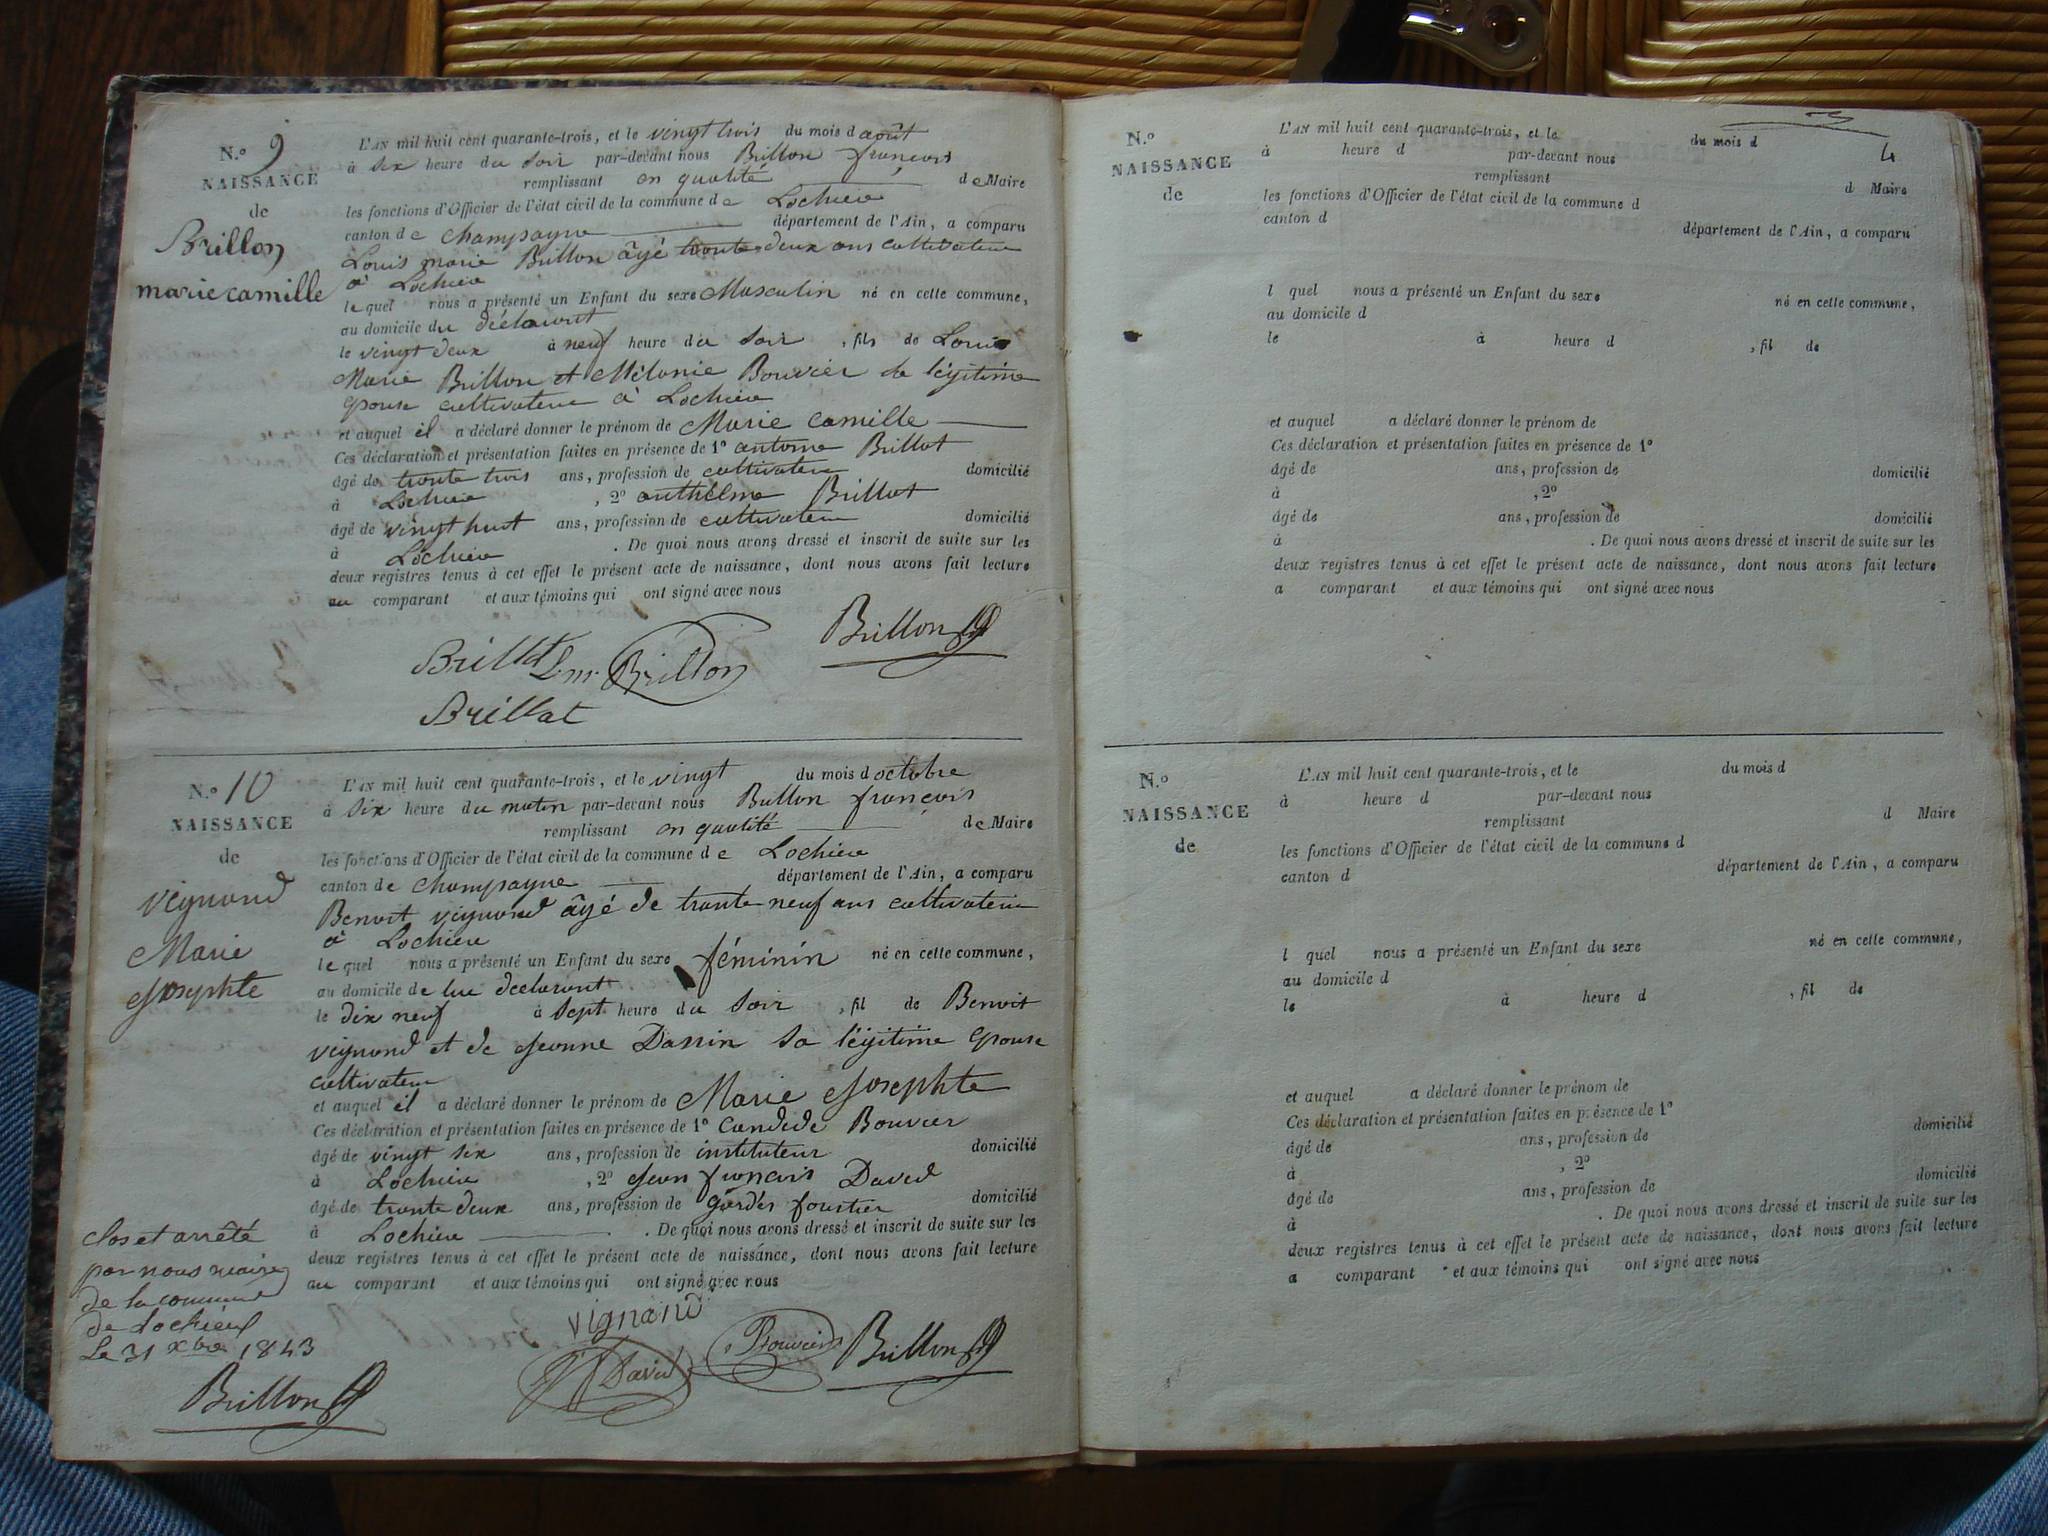 N.º 9
NAISSANCE
de
Brillon
marie camille
L'AN mil huit cent quarante-trois, et le vingt trois du mois d août
à six heure du soir par-devant nous Brillon françois
remplissant en qualité de Maire
les fonctions d'Officier de l'état civil de la commune de Lochieu
canton de Champagne département de l'Ain, a comparu
Louis marie Brillon âgé trente deux ans cultivateur
à Lochieu
lequel nous a présenté un Enfant du sexe Masculin né en cette commune,
au domicile du déclarant
le vingt deux à neuf heure du soir, fils de Louis
Marie Brillon et Mélanie Bouvier sa légitime
épouse cultivateur à Lochieu
et auquel il a déclaré donner le prénom de Marie Camille
Ces déclaration et présentation faites en présence de 1º antoine Brillat
âgé de trente trois ans, profession de cultivateur domicilié
à Lochieu, 2º anthelme Brillat
âgé de vingt huit ans, profession de cultivateur domicilié
à Lochieu. De quoi nous avons dressé et inscrit de suite sur les
deux registres tenus à cet effet le présent acte de naissance, dont nous avons fait lecture
au comparant et aux témoins qui ont signé avec nous
Brillat L.m. Brillon Brillon
Brillat
N.º 10
NAISSANCE
de
veignand
Marie
Josephte
L'AN mil huit cent quarante-trois, et le vingt du mois d octobre
à six heure du matin par-devant nous Brillon françois
remplissant en qualité de Maire
les fonctions d'Officier de l'état civil de la commune de Lochieu
canton de Champagne département de l'Ain, a comparu
Benoit veignand âgé de trente neuf ans cultivateur
à Lochieu
lequel nous a présenté un Enfant du sexe féminin né en cette commune,
au domicile de lui déclarant
le dix neuf à sept heure du soir, fil de Benoit
veignand et de Jeanne Dassin sa légitime épouse
cultivateur
et auquel il a déclaré donner le prénom de Marie Josephte
Ces déclaration et présentation faites en présence de 1º Candide Bouvier
âgé de vingt six ans, profession de instituteur domicilié
à Lochieu, 2º Jean françois David
âgé de trente deux ans, profession de gardes foustier domicilié
à Lochieu. De quoi nous avons dressé et inscrit de suite sur les
deux registres tenus à cet effet le présent acte de naissance, dont nous avons fait lecture
au comparant et aux témoins qui ont signé avec nous
vignand
David Bouvier Brillon
Clos et arrêté
par nous maire
de la commune
de Lochieu
Le 31 xbre 1843
Brillon
4
N.º
NAISSANCE
de
L'AN mil huit cent quarante-trois, et le du mois d
à heure d par-devant nous
remplissant d Maire
les fonctions d'Officier de l'état civil de la commune d
canton d département de l'Ain, a comparu
l quel nous a présenté un Enfant du sexe né en cette commune,
au domicile d
le à heure d , fil de
et auquel a déclaré donner le prénom de
Ces déclaration et présentation faites en présence de 1º
âgé de ans, profession de domicilié
à , 2º
âgé de ans, profession de domicilié
à . De quoi nous avons dressé et inscrit de suite sur les
deux registres tenus à cet effet le présent acte de naissance, dont nous avons fait lecture
a comparant et aux témoins qui ont signé avec nous
N.º
NAISSANCE
de
L'AN mil huit cent quarante-trois, et le du mois d
à heure d par-devant nous
remplissant d Maire
les fonctions d'Officier de l'état civil de la commune d
canton d département de l'Ain, a comparu
l quel nous a présenté un Enfant du sexe né en cette commune,
au domicile d
le à heure d , fil de
et auquel a déclaré donner le prénom de
Ces déclaration et présentation faites en présence de 1º
âgé de ans, profession de domicilié
à , 2º
âgé de ans, profession de domicilié
à . De quoi nous avons dressé et inscrit de suite sur les
deux registres tenus à cet effet le présent acte de naissance, dont nous avons fait lecture
a comparant et aux témoins qui ont signé avec nous